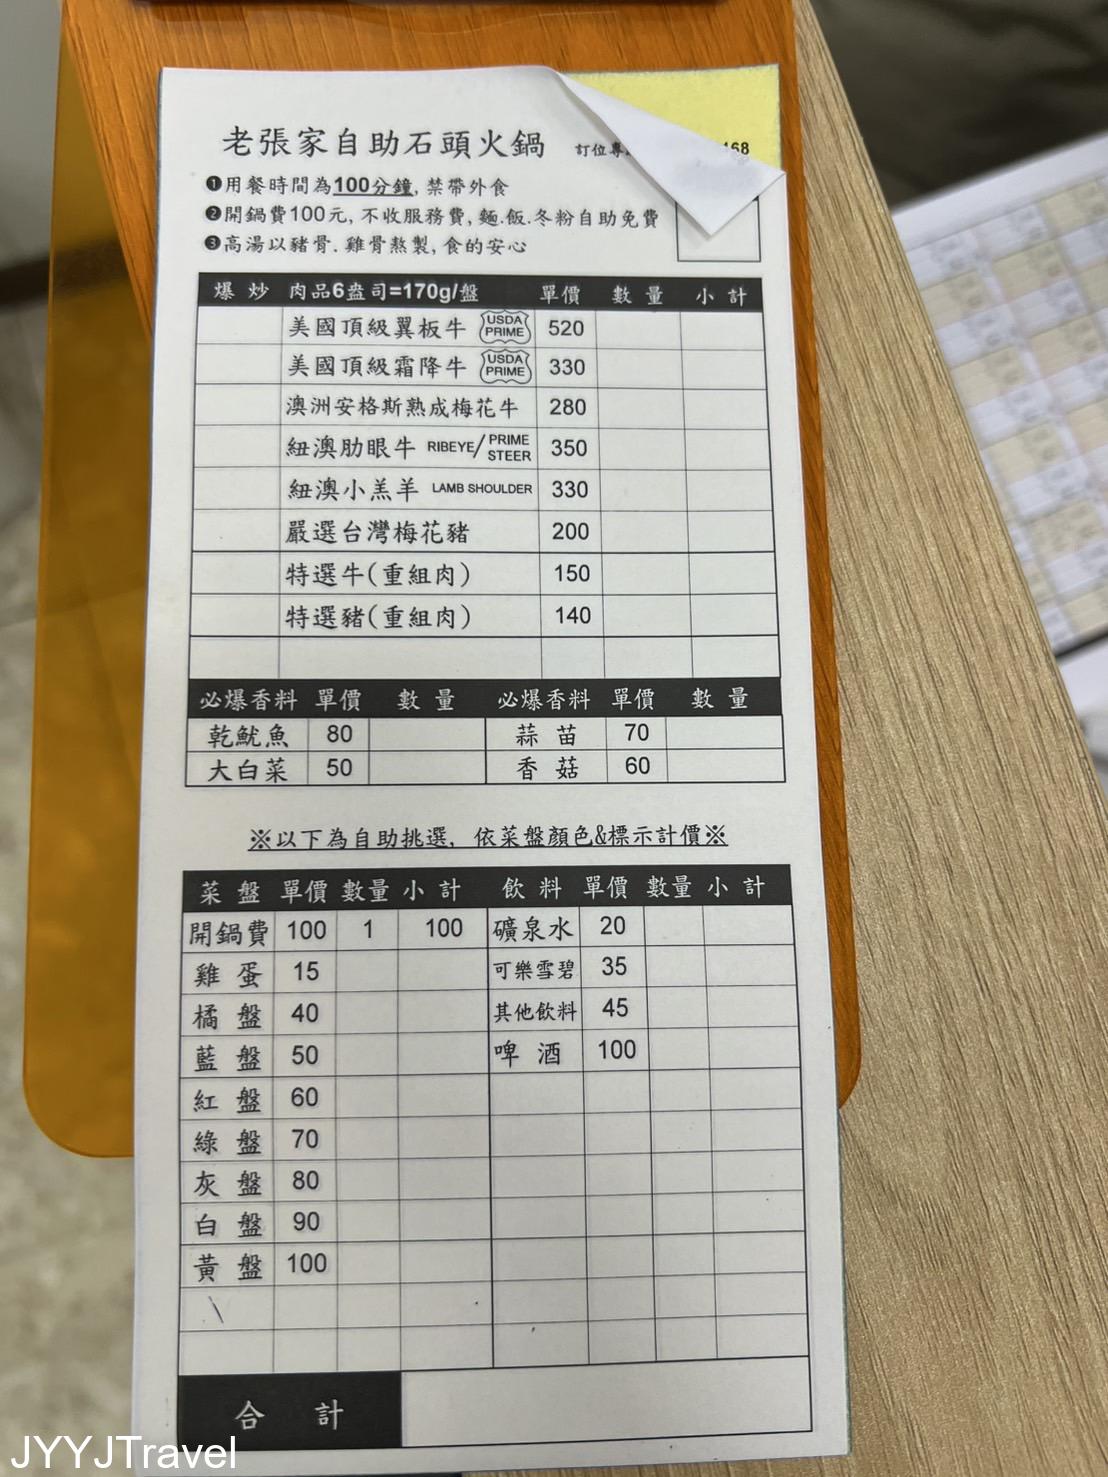 老張家自助石頭火鍋 訂位專 168
❶用餐時間為100分鐘, 禁帶外食
❷開鍋費100元, 不收服務費, 麵.飯.冬粉自助免費
❸高湯以豬骨. 雞骨熬製, 食的安心
爆炒 肉品6盎司=170g/盤 單價 數量 小計
美國頂級翼板牛 USDA PRIME 520
美國頂級霜降牛 USDA PRIME 330
澳洲安格斯熟成梅花牛 280
紐澳肋眼牛 RIBEYE/PRIME STEER 350
紐澳小羔羊 LAMB SHOULDER 330
嚴選台灣梅花豬 200
特選牛(重組肉) 150
特選豬(重組肉) 140
必爆香料 單價 數量 必爆香料 單價 數量
乾魷魚 80 蒜苗 70
大白菜 50 香菇 60
※以下為自助挑選, 依菜盤顏色&標示計價※
菜盤 單價 數量 小計 飲料 單價 數量 小計
開鍋費 100 1 100 礦泉水 20
雞蛋 15 可樂雪碧 35
橘盤 40 其他飲料 45
藍盤 50 啤酒 100
紅盤 60
綠盤 70
灰盤 80
白盤 90
黃盤 100
合計
JYYJTravel